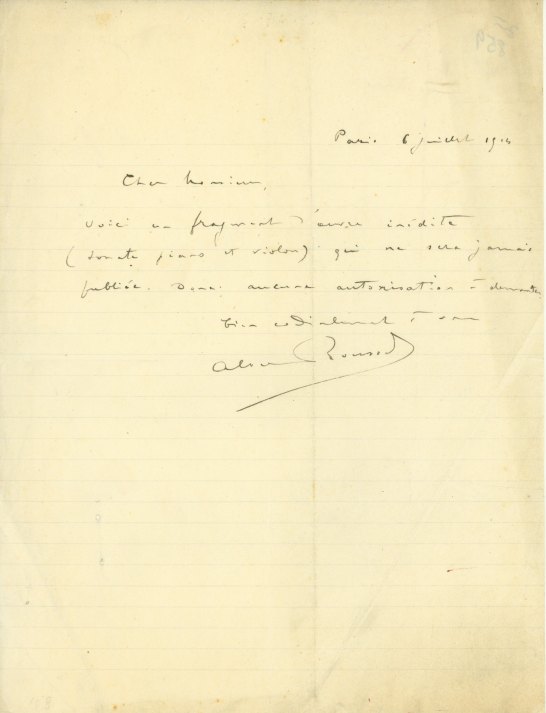 Paris 6 juillet 1914
Cher Monsieur,
Voici un fragment d'œuvre inédite
(Sonate piano et violon) qui ne sera jamais
publiée. Donc aucune autorisation à demander
bien cordialement à vous
Albert Roussel